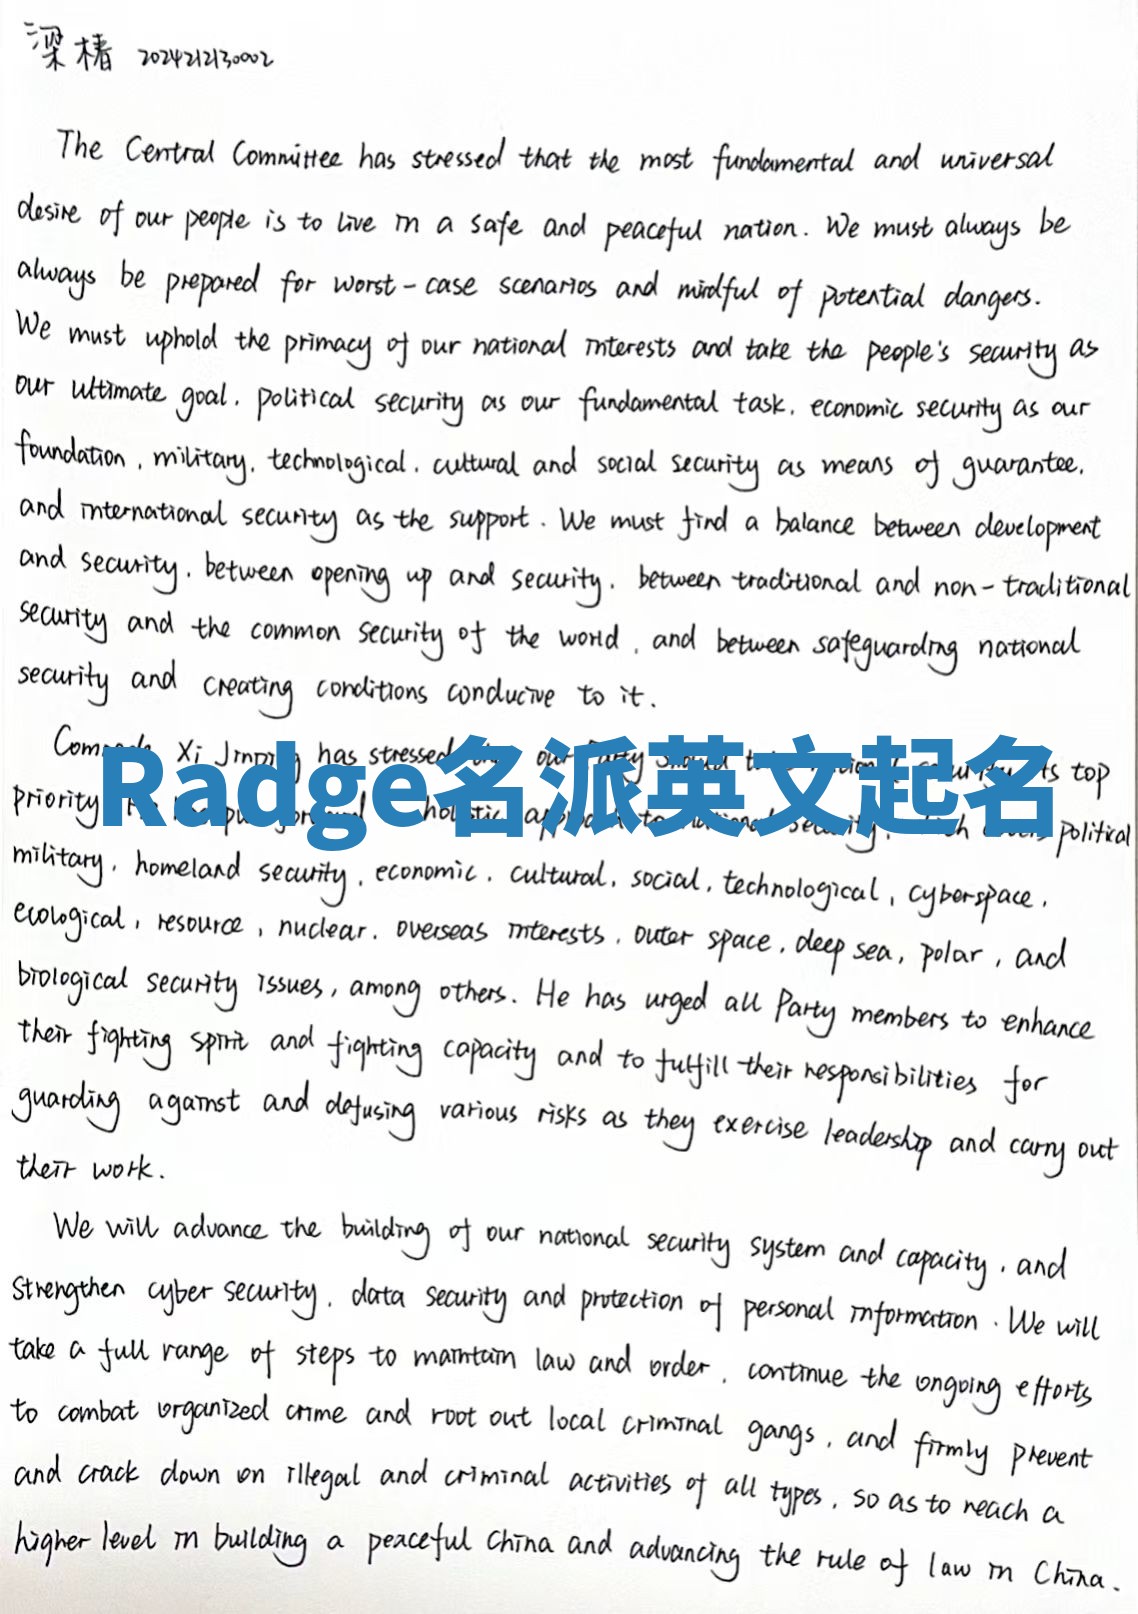 梁椿 2024212130002
The Central Committee has stressed that the most fundamental and universal
desire of our people is to live in a safe and peaceful nation. We must always be
always be prepared for worst-case scenarios and mindful of potential dangers.
We must uphold the primacy of our national interests and take the people's security as
our ultimate goal, political security as our fundamental task, economic security as our
foundation, military, technological, cultural and social security as means of guarantee,
and international security as the support. We must find a balance between development
and security, between opening up and security, between traditional and non-traditional
security and the common security of the world, and between safeguarding national
security and creating conditions conducive to it.
Xi Jinping has stressed our Party should top
priority holistic to national security, political
Radge名派英文起名
military, homeland security, economic, cultural, social, technological, cyberspace,
ecological, resource, nuclear, overseas interests, outer space, deep sea, polar, and
biological security issues, among others. He has urged all Party members to enhance
their fighting spirit and fighting capacity and to fulfill their responsibilities for
guarding against and defusing various risks as they exercise leadership and carry out
their work.
We will advance the building of our national security system and capacity, and
strengthen cyber security, data security and protection of personal information. We will
take a full range of steps to maintain law and order, continue the ongoing efforts
to combat organized crime and root out local criminal gangs, and firmly prevent
and crack down on illegal and criminal activities of all types, so as to reach a
higher level in building a peaceful China and advancing the rule of law in China.